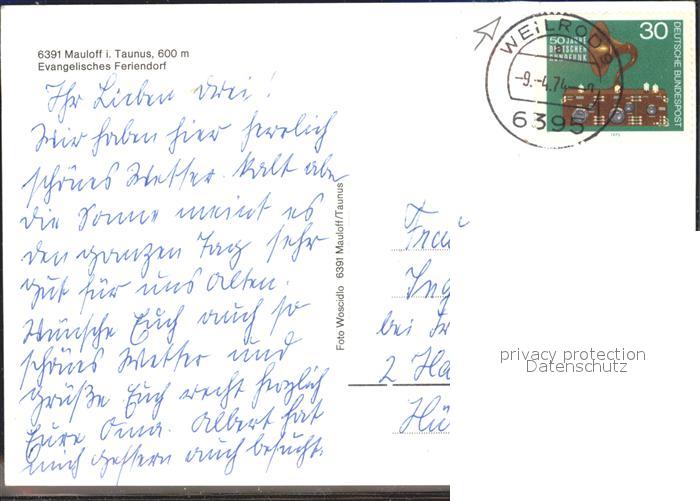 6391 Mauloff i. Taunus, 600 m
Evangelisches Feriendorf
Ihr Lieben drei!
Wir haben hier herrlich
schönes Wetter. Kalt aber
die Sonne meint es
den ganzen Tag sehr
gut für uns Alten.
Wünsche Euch auch so
schönes Wetter und
grüße Euch recht herzlich
Eure Oma. Albert hat
mich gestern auch besucht.
Foto Woscidlo 6391 Mauloff/Taunus
WEILROD
-9.-4.74
6395
50 JAHRE
DEUTSCHER
RUNDFUNK
30
DEUTSCHE BUNDESPOST
1973
Frau
Ing
bei Fr
2 Ha
Hü
privacy protection
Datenschutz